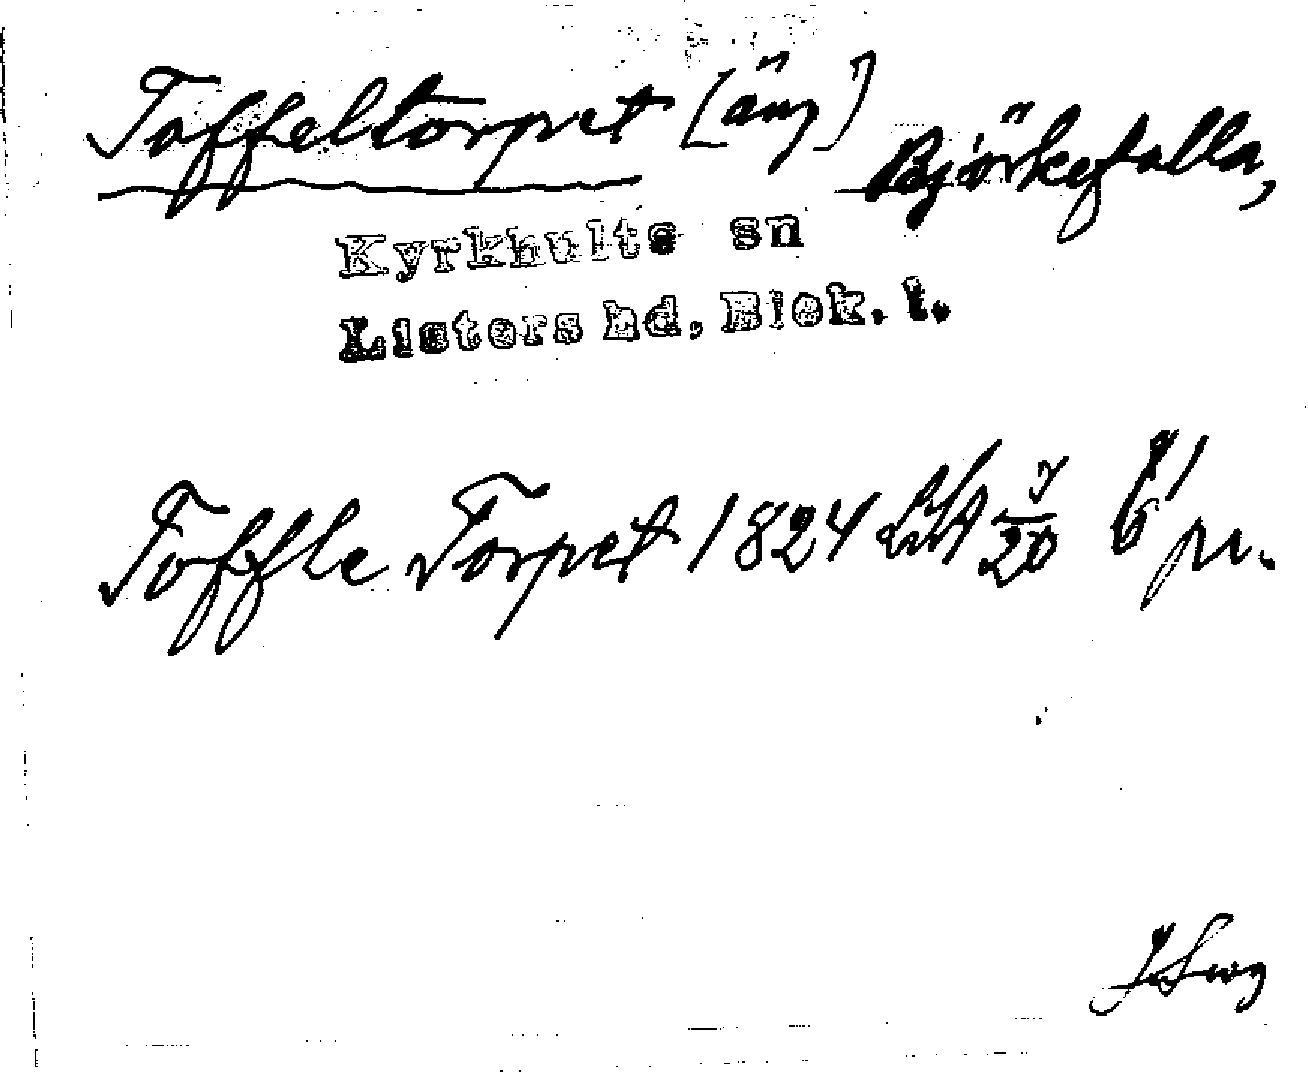 Toffeltorpet [äng] Björkefalla,
Kyrkhults sn
Listers hd, Blek. l.
Toffle Torpet 1824 LSA 7/20 6' pr.